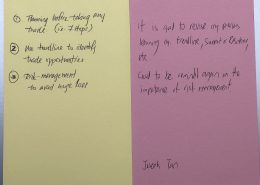 ① Planning before taking any
trade (ie. 7 steps)
② Use trendline to identify
trade opportunities
③ Risk management
to avoid huge loss
It is good to revise my previous
learning on trendline, Support & Resistance,
etc
Good to be reminded again on the
importance of risk management.
Tan